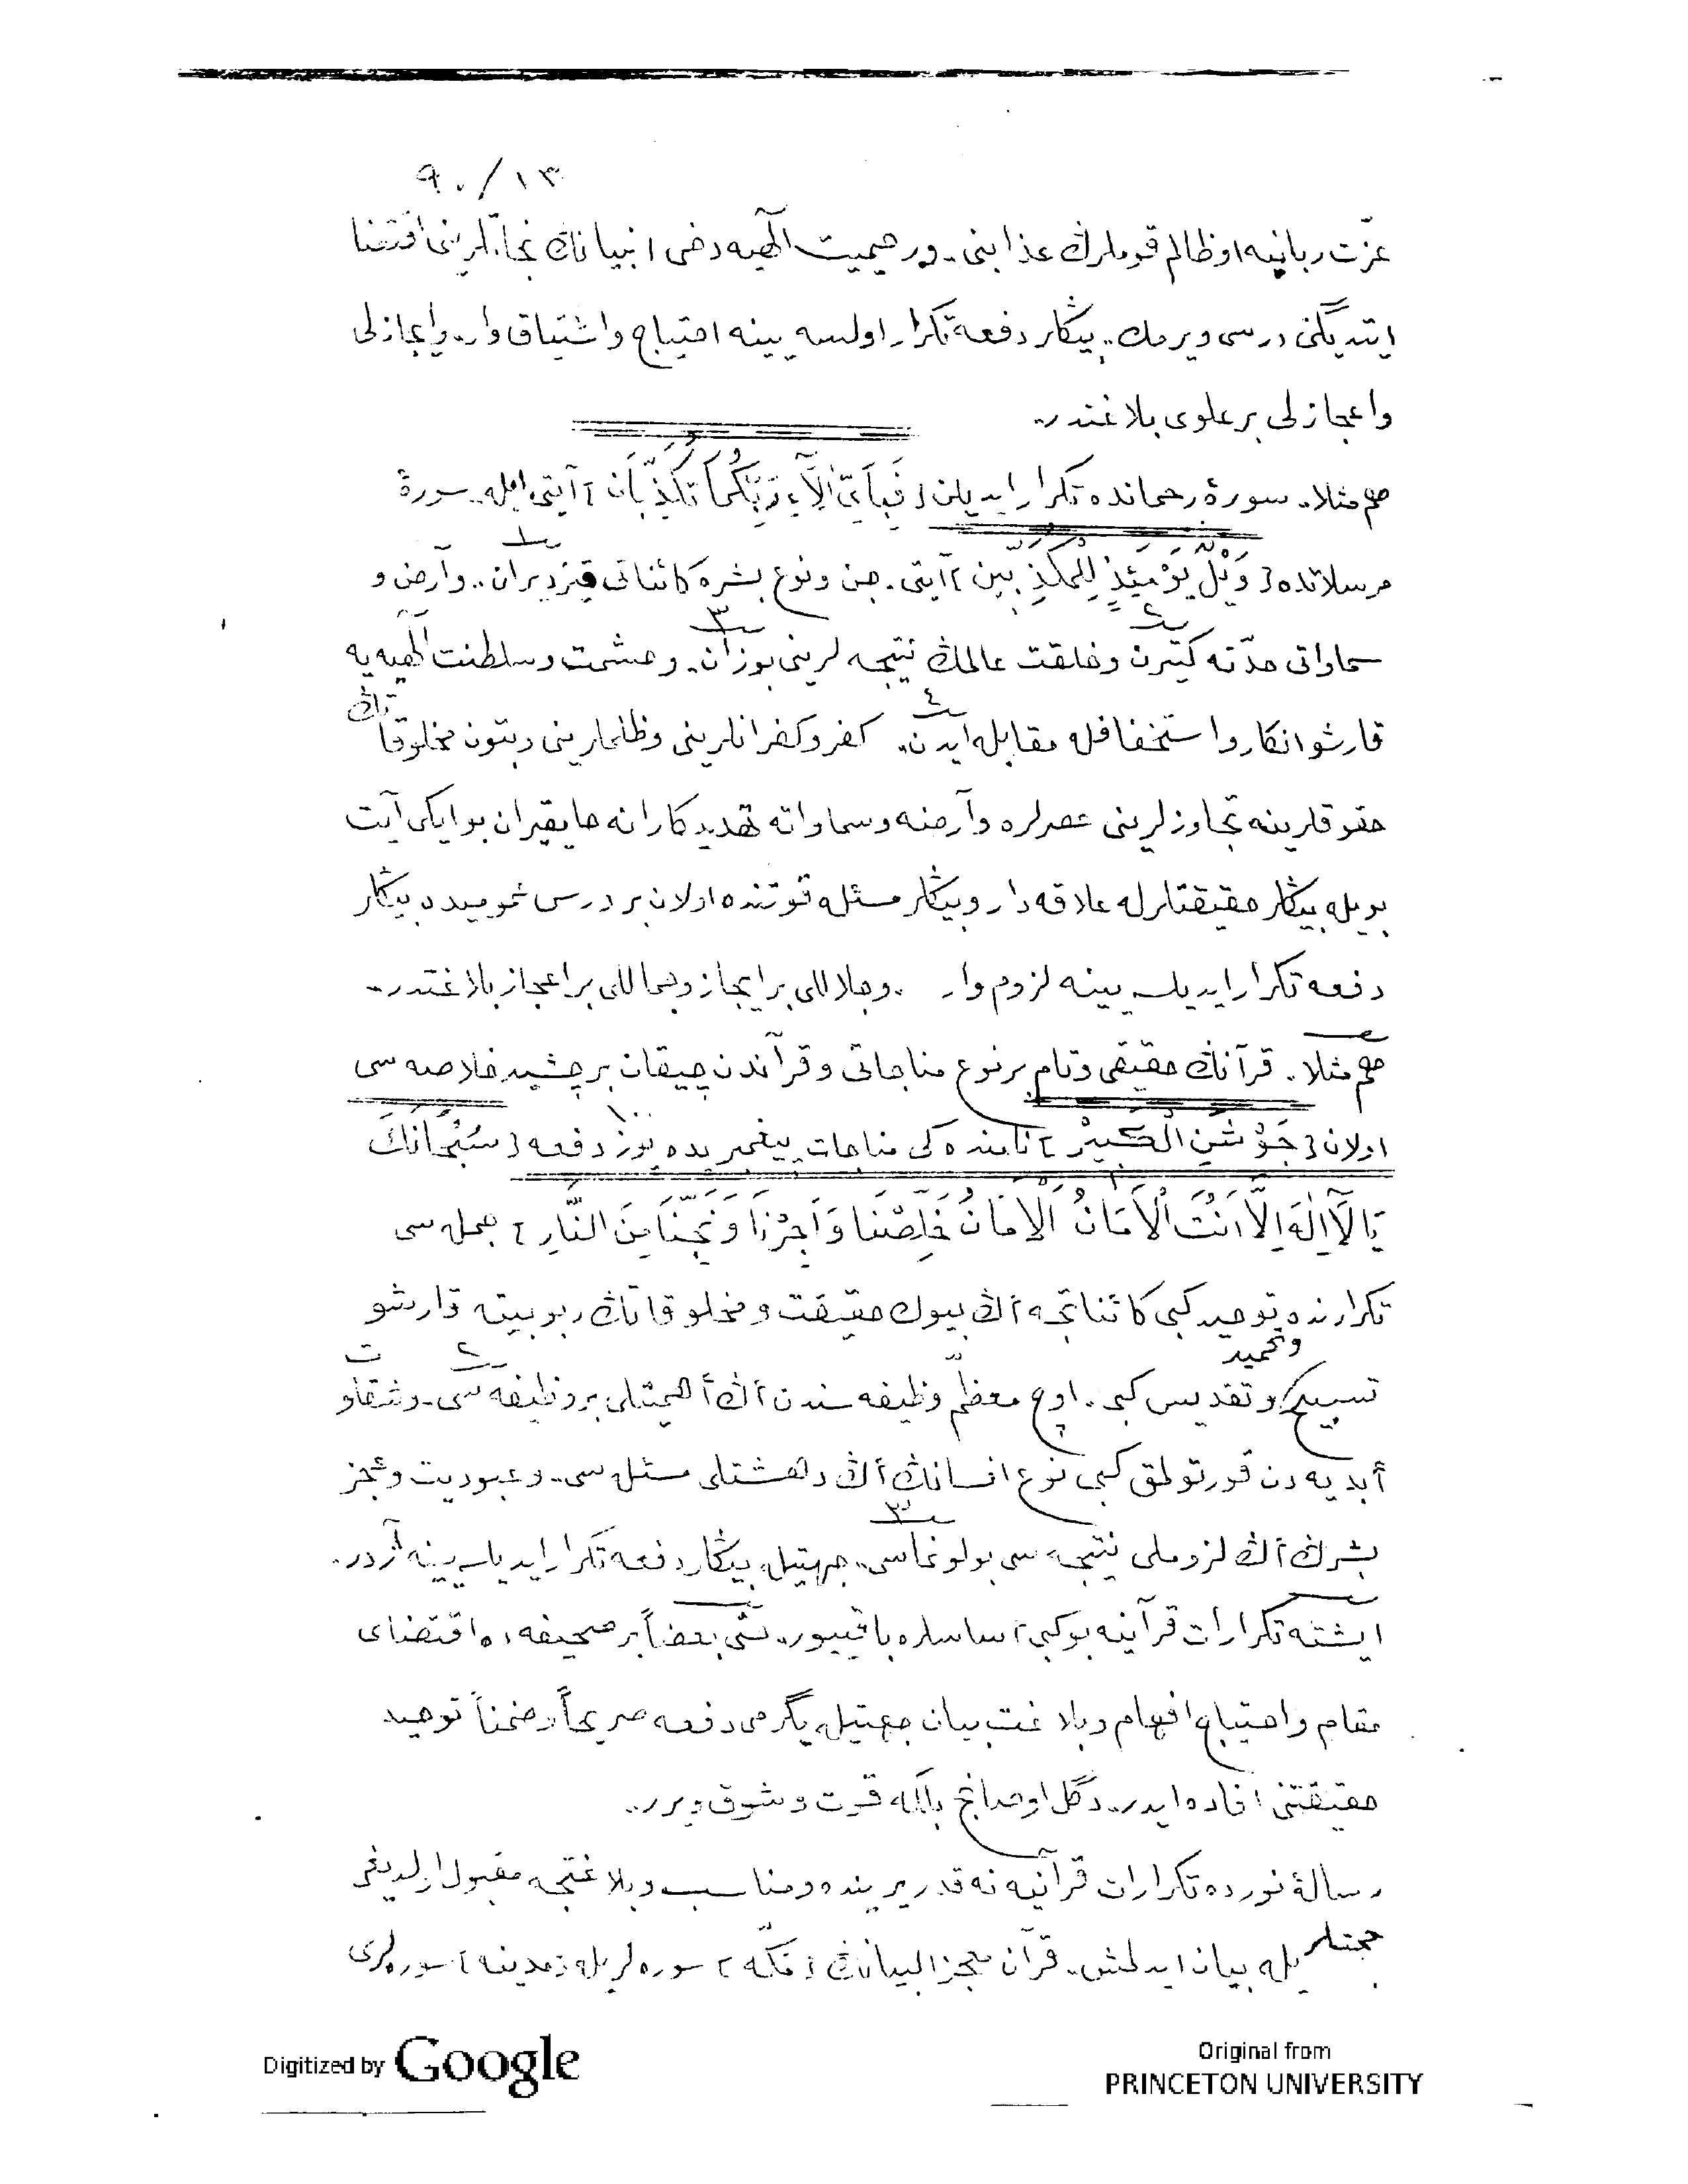 ٩٠/١٣
عزّت ربانیه او ظالم قوملرڭ عذابنی.. و رحیمیت الٓهیه دخی انبیانڭ نجاتلرینی اقتضا
ایتدیگنی درسی ویرمك.. بیڭلر دفعه تكرار اولسه یینه احتیاج و اشتیاق وار.. و ایجازلی
و اعجازلی بر علوی بلاغتدر..
هم مثلا.. سورۀ رحمانده تكرار ایدیلن [ فَبِاَىِّ اٰلَٓاءِ رَبِّكُمَا تُكَذِّبَانِ ] آیتی ایله.. سورۀ
مرسلاتده [ وَيْلٌ يَوْمَئِذٍ لِلْمُكَذِّبِينَ ] آیتی.. جن و نوع بشرڭ كائناتی قیزدیران.. و أرض و
سماواتی حدّته گتیرن و خلقت عالمڭ نتیجه لرینی بوزان.. و حشمت و سلطنت الٓهیه یه
قارشو انكار و استخفافله مقابله ایدن.. كفر و كفرانلرینی و ظلملرینی و بتون مخلوقاتڭ
حقوقلرینه تجاوزلرینی عصرلره و أرضه و سماواته تهدیدكارانه هایقیران بو ایكی آیت
بویله بیڭلر حقیقتلرله علاقه دار و بیڭلر مسئله قوتنده اولان بر درس عمومیده بیڭلر
دفعه تكرار ایدیلسه یینه لزوم وار.. و جلاللی بر ایجاز و جماللی بر اعجاز بلاغتدر..
هم مثلا.. قرآنڭ حقیقی و تام بر نوع مناجاتی و قرآندن چیقان بر چشید خلاصه سی
اولان [ جَوْشَنُ الْكَبِيرْ ] نامنده كی مناجات پیغمبریده یوز دفعه [ سُبْحَانَكَ ١٠٠
يَا لَٓا اِلٰهَ اِلَّٓا اَنْتَ اَلْاَمَانُ اَلْاَمَانُ خَلِّصْنَا وَاَجِرْنَا وَنَجِّنَا مِنَ النَّارِ ] جمله سی
تكرارنده توحید گبی كائناتجه أڭ بیوك حقیقت و مخلوقاتڭ ربوبیته قارشو
تسبیح و تحمید و تقدیس گبی.. اوچ معظّم وظیفه سندن أڭ أهمیتلی بر وظیفه سی.. و شقاوت
أبدیه دن قورتولمق گبی نوع انسانڭ أڭ دهشتلی مسئله سی.. و عبودیت و عجز
بشرڭ أڭ لزوملی نتیجه سی بولونماسی.. جهتیله بیڭلر دفعه تكرار ایدیلسه یینه آزدر.
ایشته تكرارات قرآنیه بو گبی أساسلره باقییور.. حتّی بعضاً بر صحیفه ده اقتضای
مقام و احتیاج افهام و بلاغت بیان جهتیله یگرمی دفعه صریحاً و ضمناً توحید
حقیقتنی افاده ایدر.. دگل اوصانج بلكه قوت و شوق ویرر..
رسالۀ نورده تكرارات قرآنیه نه قدر یرینده و مناسب و بلاغتجه مقبول اولدیغی
حجتلریله بیان ایدلمش.. قرآن معجز البیانڭ [ مكّه ] سوره لریله [ مدینه ] سوره لری
Digitized by Google
Original from
PRINCETON UNIVERSITY